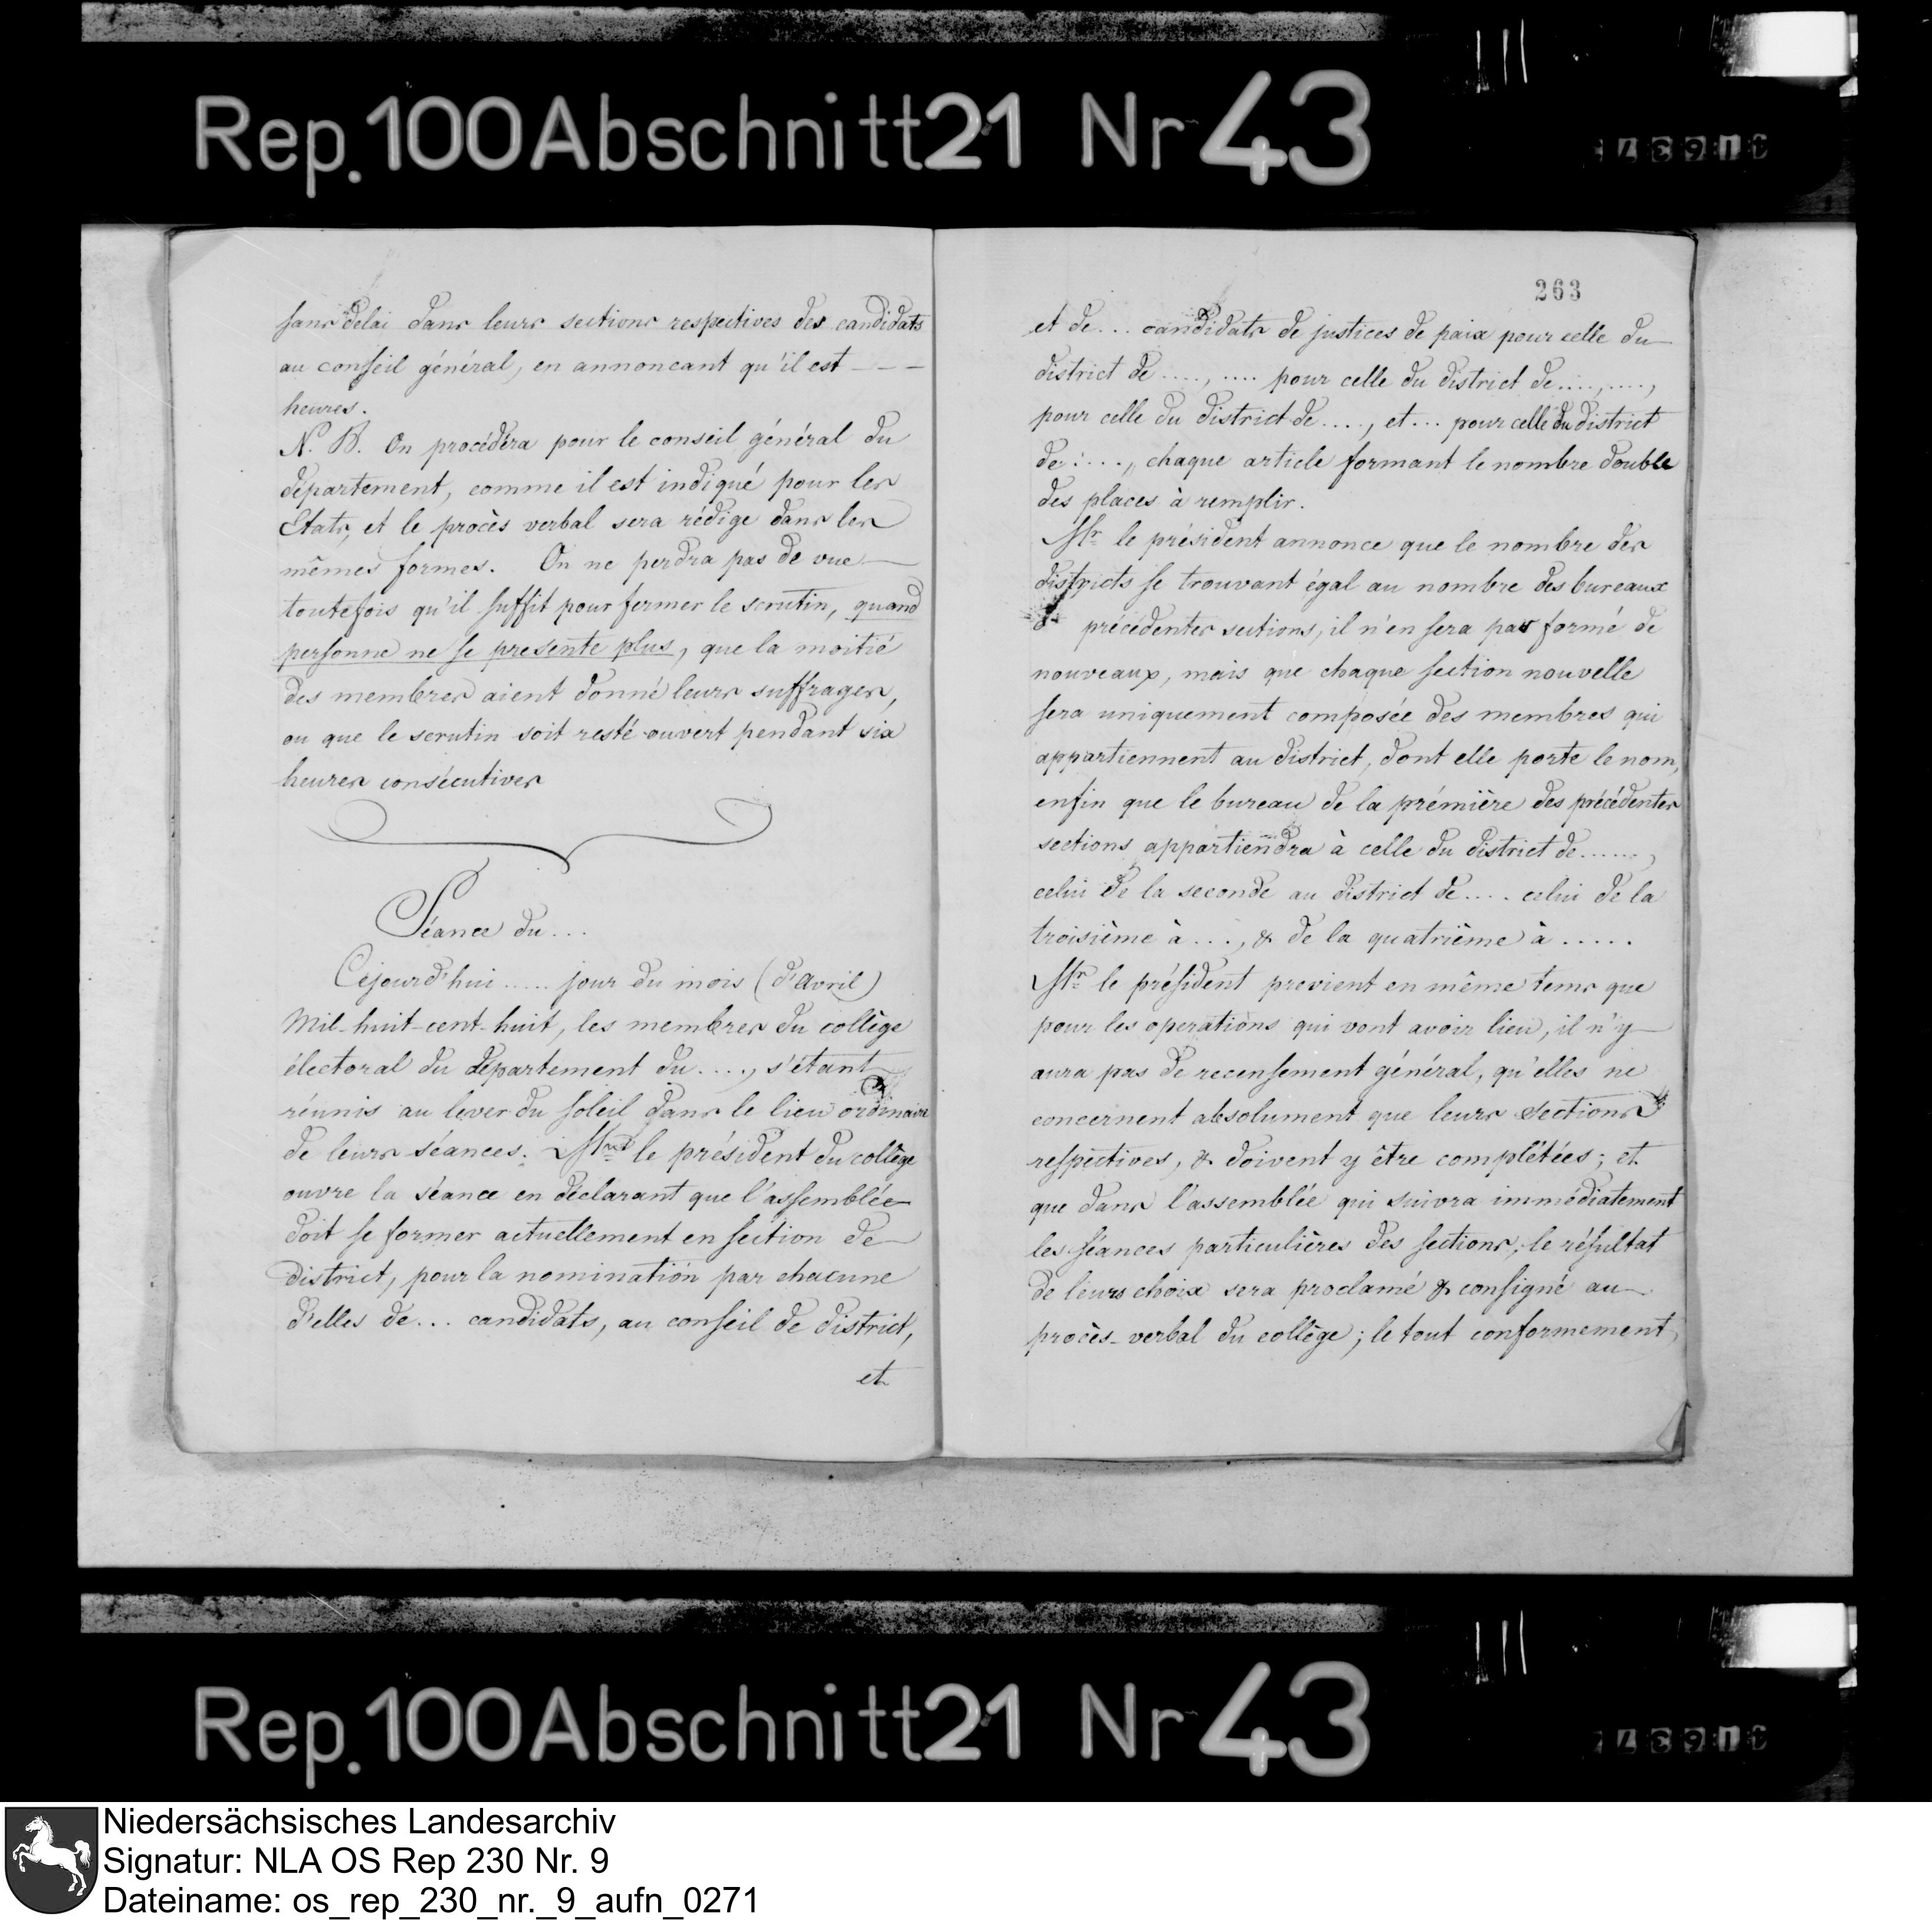 Rep. 100 Abschnitt 21 Nr 43
sans délai dans leurs sections respectives des candidats
au conseil général, en annoncant qu'il est - - -
heures.
N. B. On procédéra pour le conseil général du
département, comme il est indiqué pour les
Etats, et le procès verbal sera rédige dans les
mêmes formes. On ne perdra pas de vue
toutefois qu'il suffit pour fermer le scrutin, quand
personne ne se presente plus, que la moitié
des membres aient donné leurs suffrages,
ou que le scrutin soit resté ouvert pendant six
heures consécutives
Séance du...
Cejourd'hui ..... jour du mois (d'avril)
Mil-huit-cent-huit, les membres du collège
électoral du département du ...., s'étant
réunis au lever du soleil dans le lieu ordinaire
de leurs séances. Mr le président du collège
ouvre la séance en déclarant que l'assemblée
doit se former actuellement en section de
district, pour la nomination par chacune
d'elles de... candidats, au conseil de district,
et
263
et de... candidats de justices de paix pour celle du
district de ...., .... pour celle du district de ...., ....,
pour celle du district de ...., et... pour celle du district
de ...., chaque article formant le nombre double
des places à remplir.
Mr le président annonce que le nombre des
districts se trouvant égal au nombre des bureaux
précédentes sections, il n'en sera pas formé de
nouveaux, mais que chaque section nouvelle
sera uniquement composée des membres qui
appartiennent au district, dont elle porte le nom,
enfin que le bureau de la prémière des précédentes
sections appartiendra à celle du district de ......,
celui de la seconde au district de .... celui de la
troisième à ..., & de la quatrième à .....
Mr le président previent en même tems que
pour les operations qui vont avoir lieu, il n'y
aura pas de recensement général, qu'elles ne
concernent absolument que leurs sections
respectives, & doivent y être complétées; et
que dans l'assemblée qui suivra immédiatement
les séances particulières des sections, le résultat
de leurs choix sera proclamé & consigné au
procès-verbal du collège; le tout conformement
Rep. 100 Abschnitt 21 Nr 43
Niedersächsisches Landesarchiv
Signatur: NLA OS Rep 230 Nr. 9
Dateiname: os_rep_230_nr._9_aufn_0271